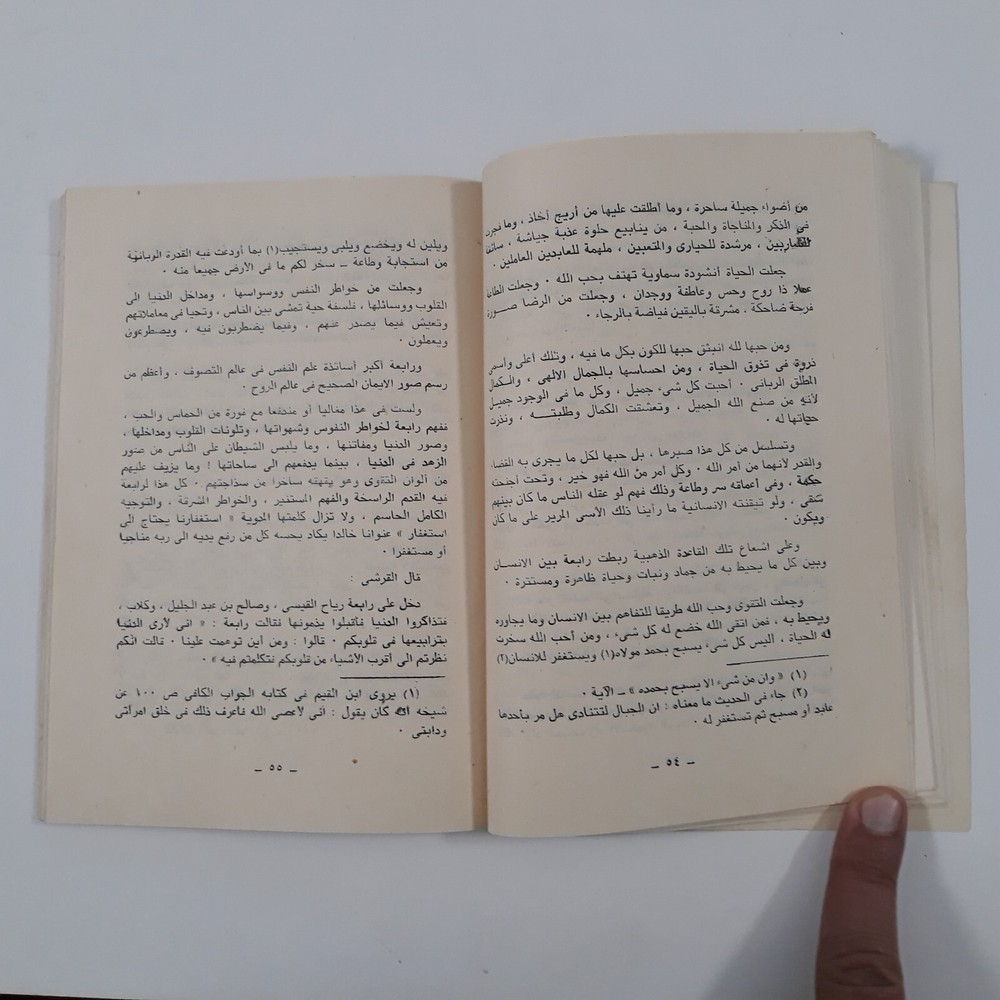 من أضواء جميلة ساحرة ، وما أطلقت عليها من أريج أخاذ ، وما فجرت
فى الذكر والمناجاة والمحبة ، من ينابيع حلوة عذبة جياشة ،
للشاربين ، مرشدة للحيارى والمتعبين ، ملهمة للعابدين العاملين .
جعلت الحياة أنشودة سماوية تهتف بحب الله . وجعلت الطاعة
عملا ذا روح وحس وعاطفة ووجدان ، وجعلت من الرضا صـــورة
فرحة ضاحكة . مشرقة باليقين فياضة بالرجاء .
ومن حبها لله انبثق حبها للكون بكل ما فيه ، وتلك أعلى وأسمى
ذروة فى تذوق الحياة ، ومن احساسها بالجمال الالهى ، والـكمال
المطلق الربانى . أحبت كل شىء جميل ، وكل ما فى الوجود جميل
لأنه من صنع الله الجميل ، وتعشقت الكمال وطلبتـــه ، ونذرت
حياتها له .
وتسلسل من كل هذا صبرها . بل حبها لكل ما يجرى به القضاء
والقدر لأنهما من أمر الله . وكل أمر من الله فهو خير ، وتحت أجنحته
حكمة ، وفى أعماقه سر وطاعة وذلك فهم لو عقله الناس ما كان بينهم
شقى ، ولو تيقنته الانسانية ما رأينا ذلك الأسى المرير على ما كان
ويكون .
وعلى اشعاع تلك القاعدة الذهبية ربطت رابعة بين الانســان
وبين كل ما يحيط به من جماد ونبات وحياة ظاهرة ومستترة .
وجعلت التقوى وحب الله طريقا للتفاهم بين الانسان وما يجاوره
ويحيط به ، فمن اتقى الله خضع له كل شىء ، ومن أحب الله سخرت
له الحياة ، اليس كل شىء يسبح بحمد مولاه(١) ويستغفر للانسان(٢)
(١) « وان من شىء الا يسبح بحمده » ــ الآية .
(٢) جاء فى الحديث ما معناه : ان الجبال لتتنادى هل مر بأحدها
عابد أو مسبح ثم تستغفر له .
ــ ٥٤ ــ
ويلين له ويخضع ويلبى ويستجيب(١) بما أودعت فيه القدرة الربانية
من استجابة وطاعة ــ سخر لكم ما فى الأرض جميعا منه .
وجعلت من خواطر النفس ووسواسها ، ومداخل الدنيا الى
القلوب ووسائلها ، فلسفة حية تمشى بين الناس ، وتحيا فى معاملاتهم
وتعيش فيما يصدر عنهم ، وفيما يضطربون فيه ، ويصطرعون
ويعملون .
ورابعة أكبر أساتذة علم النفس فى عالم التصوف ، وأعظم من
رسم صور الايمان الصحيح فى عالم الروح .
ولست فى هذا مغاليا أو مندفعا مع فورة من الحماس والحب ،
ففهم رابعة لخواطر النفوس وشهواتها ، وتلونات القلوب ومداخلها ،
وصور الدنيا ومفاتنها . وما يلبس الشيطان على الناس من صور
الزهد فى الدنيا ، بينما يدفعهم الى ساحاتها ! وما يزيف عليهم
من ألوان التقوى وهو يقهقه ساخرا من سذاجتهم . كل هذا لرابعة
فيه القدم الراسخة والفهم المستنير ، والخواطر المشرقة ، والتوجيه
الكامل الحاسم . ولا تزال كلمتها المدوية « استغفارنا يحتاج الى
استغفار » عنوانا خالدا يكاد يحسه كل من رفع يديه الى ربه مناجيا
أو مستغفرا .
قال القرشى :
دخل على رابعة رياح القيسى ، وصالح بن عبد الجليل ، وكلاب ،
فتذاكروا الدنيا فأقبلوا يذمونها فقالت رابعة : « انى لأرى الدنيا
بترابيعها فى قلوبكم . قالوا : ومن أين توهمت علينا . قالت انكم
نظرتم الى أقرب الأشياء من قلوبكم فتكلمتم فيه » .
(١) يروى ابن القيم فى كتابه الجواب الكافى ص ١٠٠ عن
شيخه انه كان يقول : انى لأعصى الله فأعرف ذلك فى خلق امرأتى
ودابتى .
ــ ٥٥ ــ